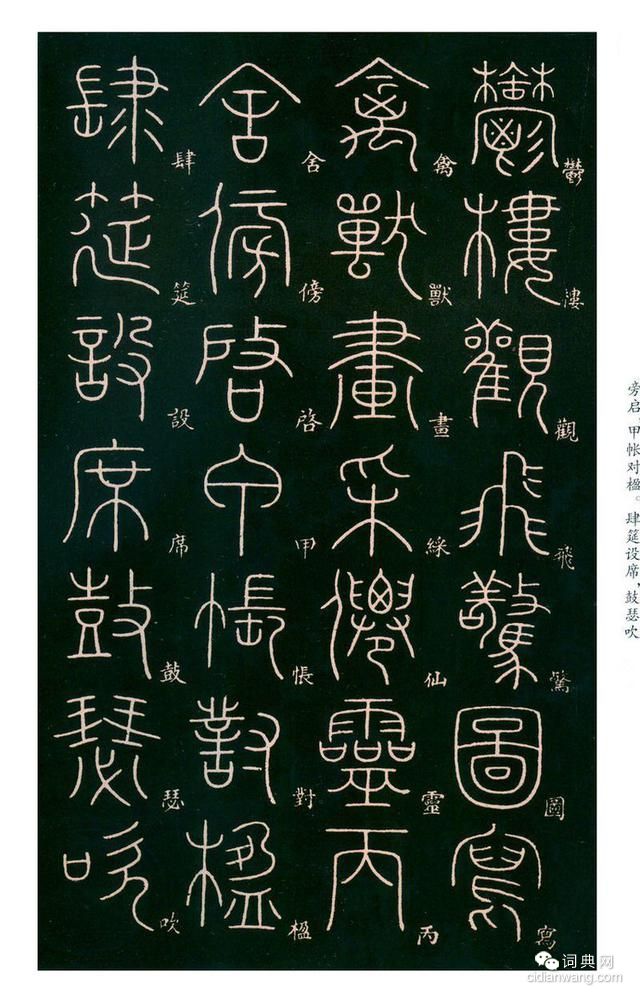 旁启，甲帐对楹。肆筵设席，鼓瑟吹
鬱樓觀飛驚圖寫
禽獸畫綵仙靈丙
舍傍啓甲帳對楹
肆筵設席鼓瑟吹
词典网
cidianwang.com